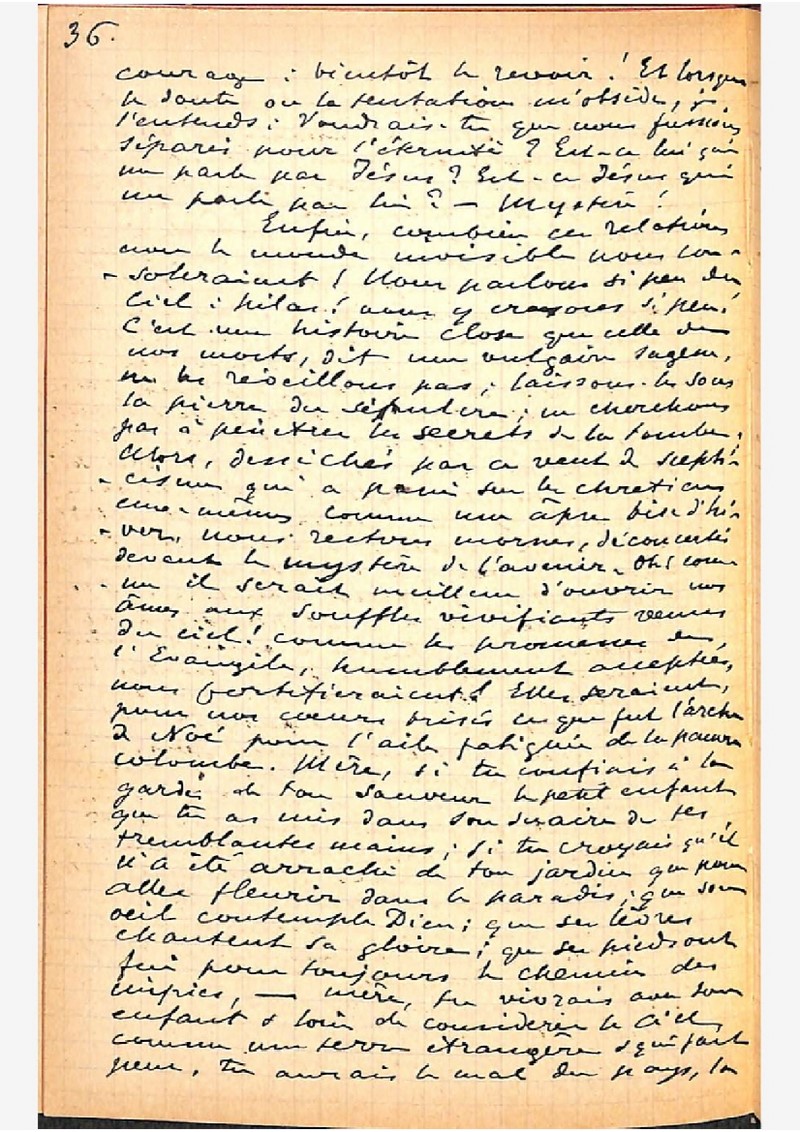 36.
courage : bientôt le revoir ! Et lorsque
le doute ou la tentation m'obsède, je
l'entends : Voudrais-tu que nous fussions
séparés pour l'éternité ? Est-ce lui qui
me parle par Jésus ? Est-ce Jésus qui
me parle par lui ? — Mystère !
Enfin, combien ces relations
avec le monde invisible nous con-
soleraient ! Nous parlons si peu du
Ciel : hélas ! nous y croyons si peu !
C'est une histoire close que celle de
nos morts, dit une vulgaire sagesse,
ne les réveillons pas ; laissons-les sous
la pierre du sépulcre ; ne cherchons
pas à pénétrer les secrets de la tombe ;
Alors, desséchés par ce vent de scepti-
cisme qui a passé sur les chrétiens
eux-mêmes comme une âpre bise d'hi-
ver, nous restons mornes, déconcertés
devant le mystère de l'avenir. Oh ! com-
me il serait meilleur d'ouvrir nos
âmes aux souffles vivifiants venus
du ciel ! comme les promesses de
l'Evangile, humblement acceptées,
nous fortifieraient ! Elles seraient,
pour nos cœurs brisés ce que fut l'arche
de Noé pour l'aile fatiguée de la pauvre
colombe. Mère, si tu confiais à la
garde de ton Sauveur le petit enfant
que tu as mis dans son suaire de tes
tremblantes mains ; si tu croyais qu'il
n'a été arraché de ton jardin que pour
aller fleurir dans le paradis ; que son
oeil contemple Dieu ; que ses lèvres
chantent sa gloire ; que ses pieds ont
fui pour toujours le chemin des
impies, — mère, tu vivrais avec ton
enfant & loin de considérer le Ciel
comme une terre étrangère & qui fait
peur, tu aurais le mal du pays, la